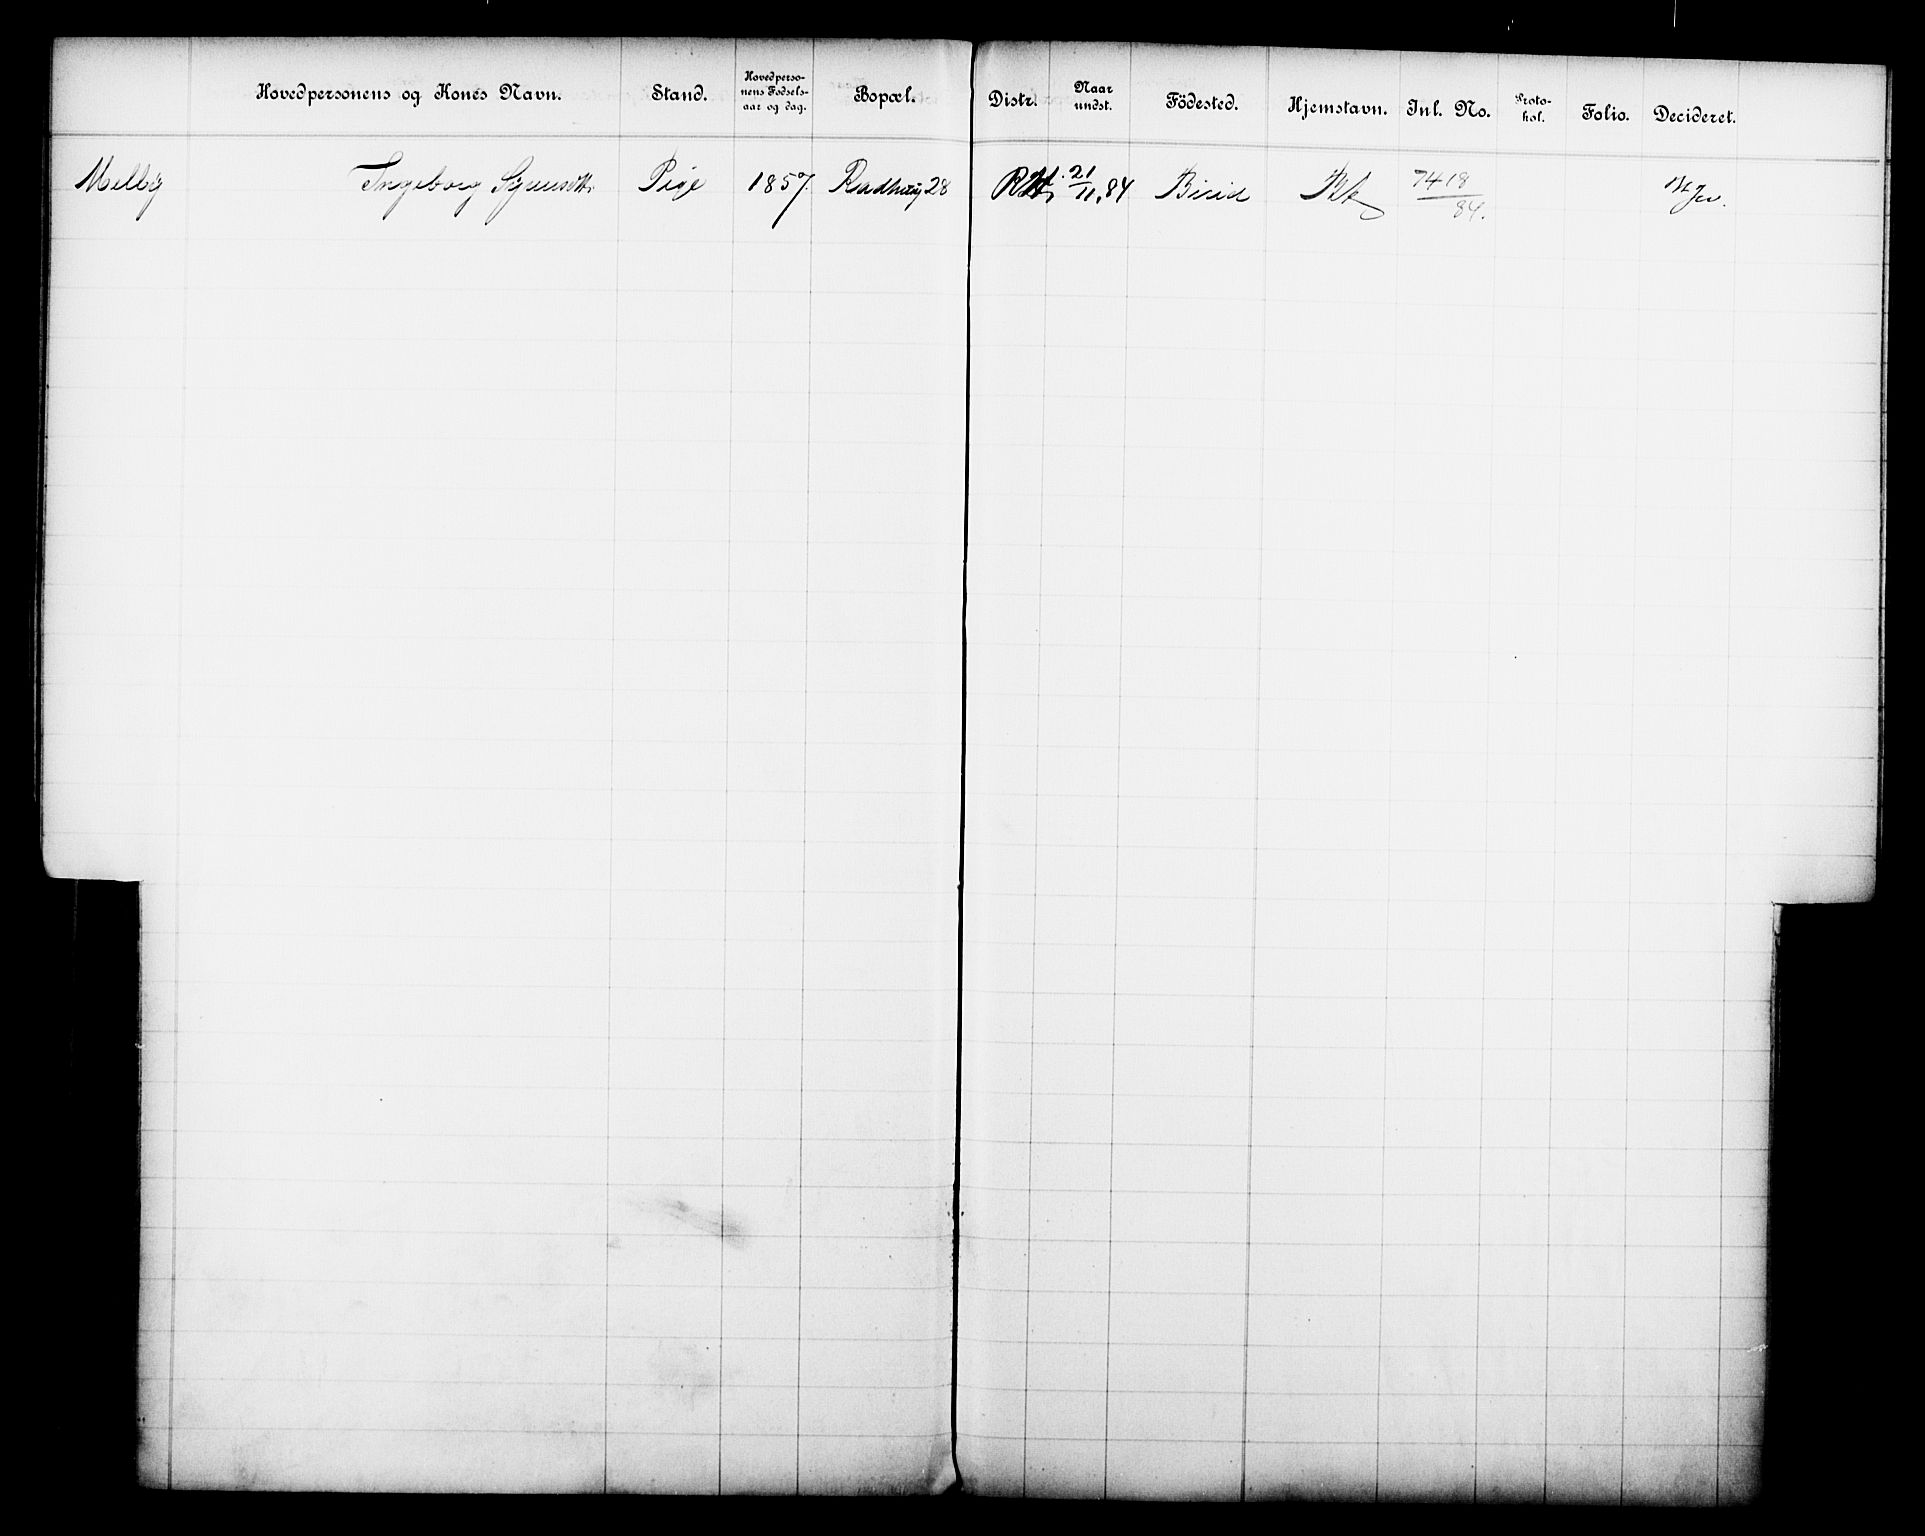 Hovedpersonens og Kones Navn. Stand. Hovedperso-nens Fodsels-aar og dag. Bopæl. Distr. Naar undst. Födested. Hjemstavn. Inl. No. Proto-kol. Folio. Decideret.
Melby Ingeborg Pige 1857 Raadhusg 28 21/11.84 Biri 7418/84.